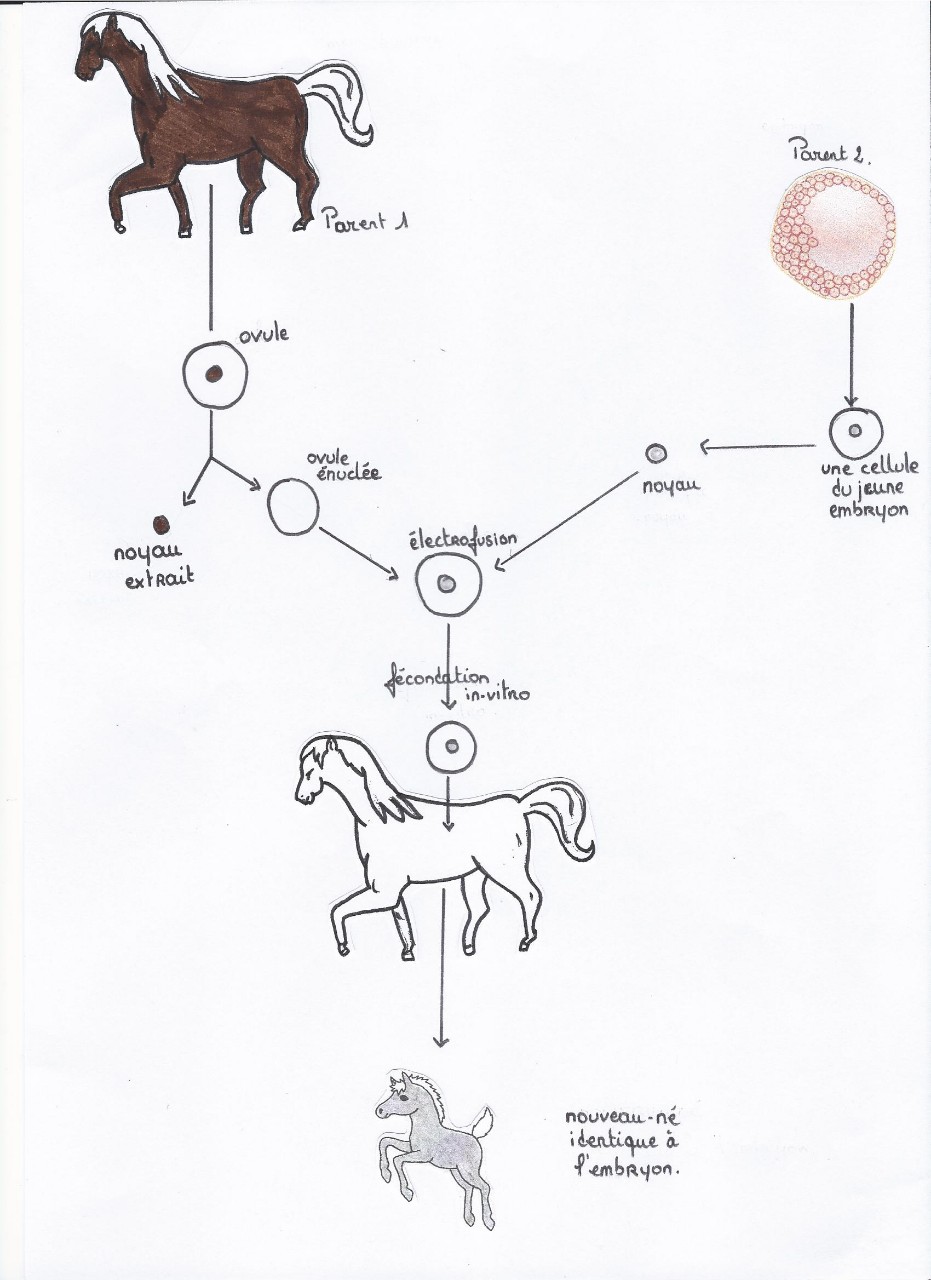 Parent 1
Parent 2.
ovule
ovule
énuclée
noyau
extrait
noyau
une cellule
du jeune
embryon
électrofusion
fécondation
in-vitro
nouveau-né
identique à
l'embryon.